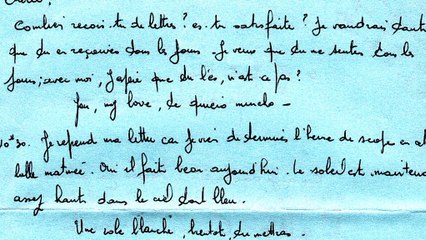 Combien reçois-tu de lettres? es-tu satisfaite? Je voudrais tant
que tu en reçoives tous les jours. Je veux que tu me sentes tous les
jours; avec moi, j'espère que tu l'es, n'est ce pas?
You, my love, te quiero mucho -
10H30. Je reprend ma lettre car je viens de terminer l'heure de
belle matinée. Oui il fait beau aujourd'hui. Le soleil est maintenant
assez haut dans le ciel tout bleu.
Une robe blanche, bientôt, tu mettras.